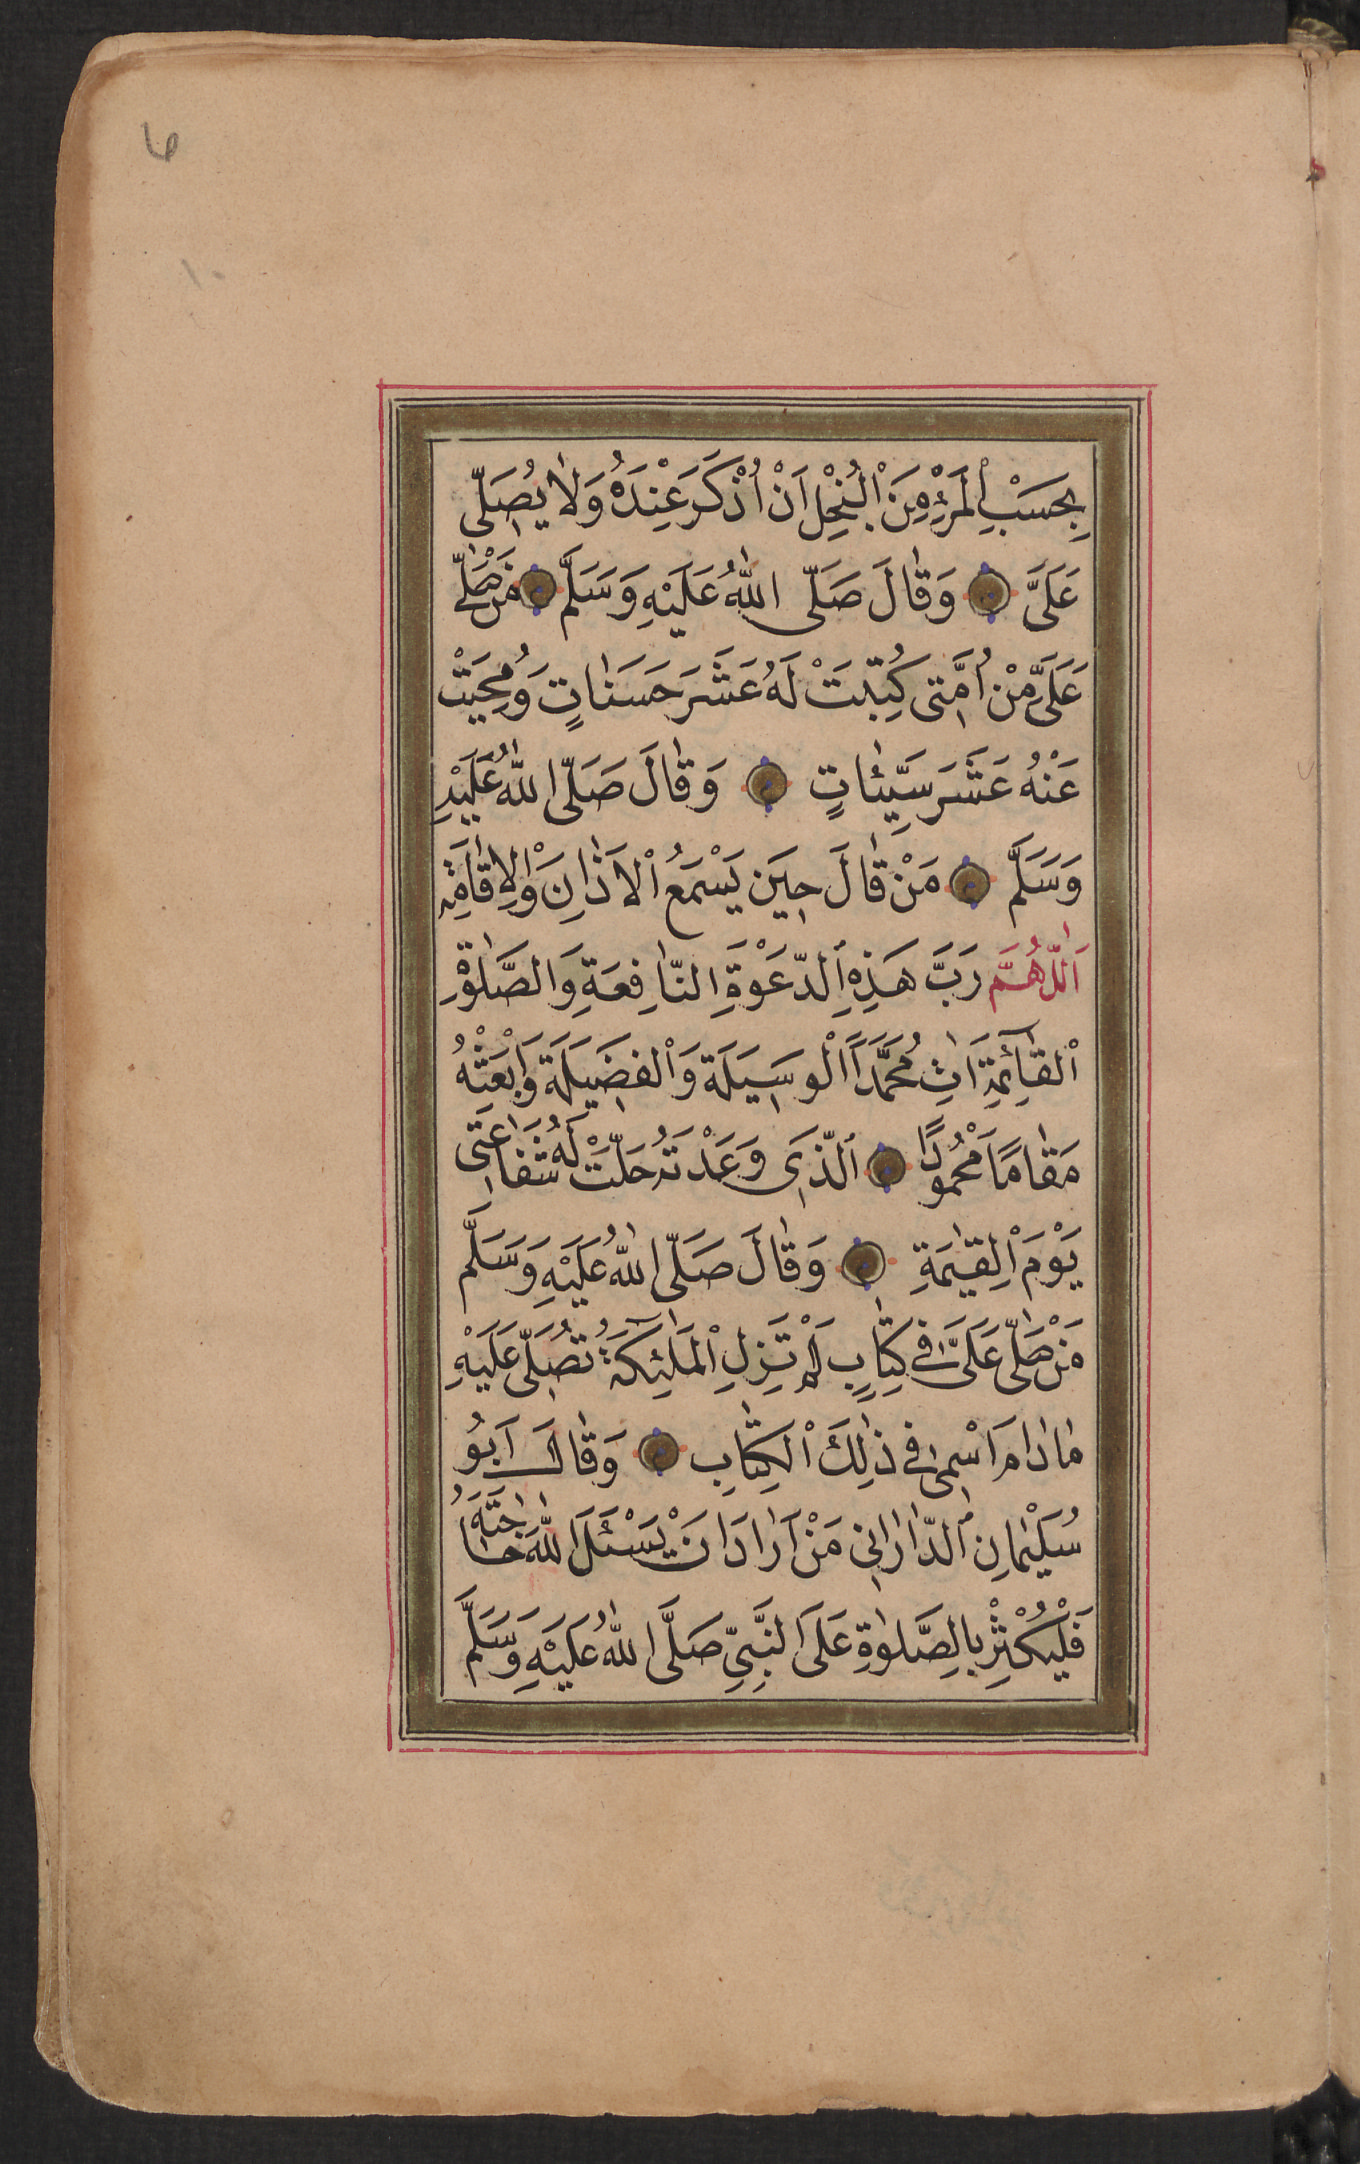 بِحَسْبِ الْمَرْءِ مِنَ الْبُخْلِ اَنْ اُذْكَرَ عِنْدَهُ وَلَا يُصَلِّى
عَلَىَّ وَقَالَ صَلَّى اللّٰهُ عَلَيْهِ وَسَلَّمَ مَنْ صَلّٰى
عَلَىَّ مِنْ اُمَّتِى كُتِبَتْ لَهُ عَشَرَ حَسَنَاتٍ وَمُحِيَتْ
عَنْهُ عَشَرَ سَيِّئَاتٍ وَقَالَ صَلَّى اللّٰهُ عَلَيْهِ
وَسَلَّمَ مَنْ قَالَ حِيَن يَسْمَعُ الْاَذَانِ وَالْاِقَامَةِ
اَللّٰهُمَّ رَبَّ هَذِهِ الدَّعْوَةِ النَّافِعَةِ وَالصَّلٰوةِ
الْقَائِمَةِ اٰتِ مُحَمَّدًا الْوَسِيَلَةَ وَالْفَضِيَلَةَ وَابْعَثْهُ
مَقَامًا مَحْمُودًا الَّذِى وَعَدْتَهُ حَلَّتْ لَهُ شَفَاعَتِى
يَوْمَ الْقِيٰمَةِ وَقَالَ صَلَّى اللّٰهُ عَلَيْهِ وَسَلَّمَ
مَنْ صَلّٰى عَلَىَّ فِى كِتَابٍ لَمْ تَزَلِ الْمَلٰئِكَةُ تُصَلِّى عَلَيْهِ
مَادَامَ اسْمِى فِى ذٰلِكَ الْكِتَابِ وَقَالَ اَبُو
سُلَيْمَانِ الدَّارَانِى مَنْ اَرَادَ اَنْ يَسْئَلَ اللّٰهَ حَاجَتَهُ
فَلْيُكْثِرْ بِالصَّلٰوةِ عَلَى النَّبِىِّ صَلَّى اللّٰهُ عَلَيْهِ وَسَلَّمَ